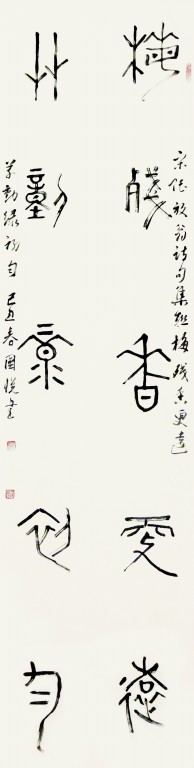 宋陸放翁詩句集聯梅殘香更遠
梅殘香更遠
艸動綠初勻
草動綠初勻 己丑春國悅書